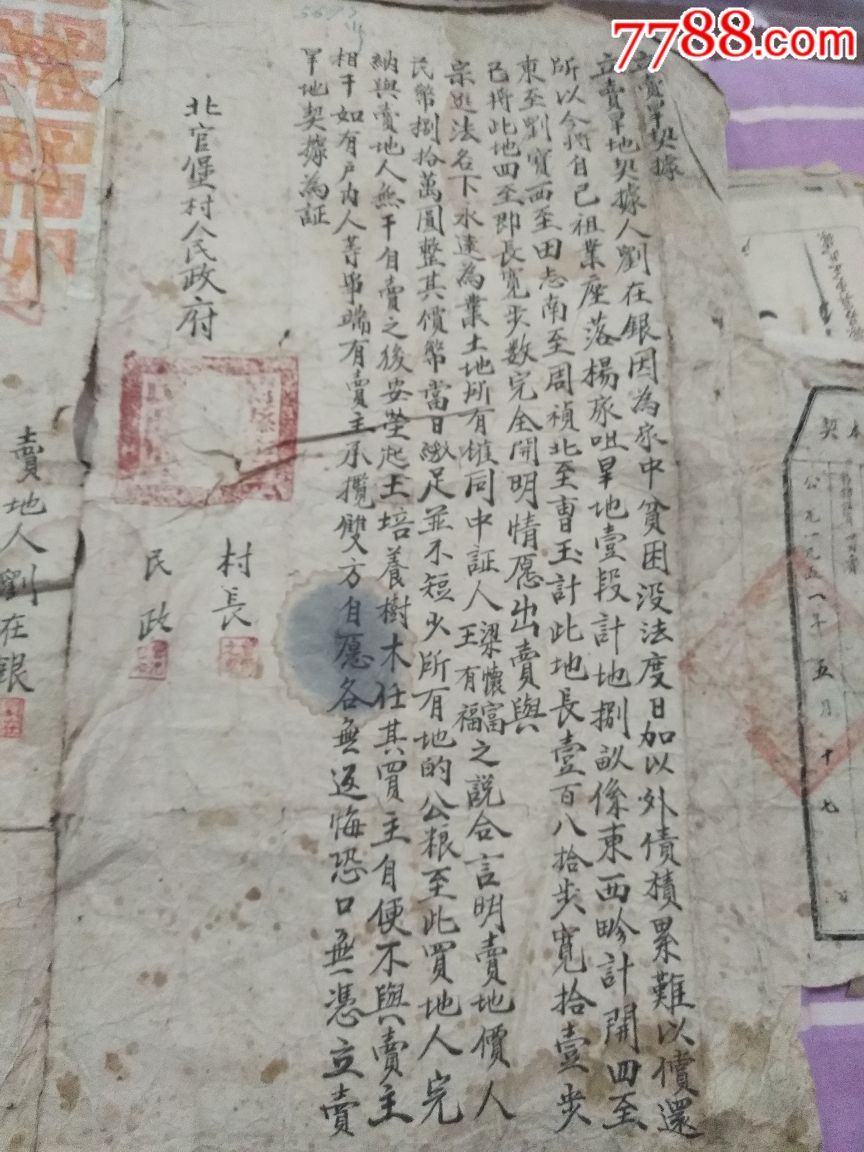 7788.com
立賣旱契據
立賣旱地契據人劉在銀因為家中貧困没法度日加以外債積累難以償還
所以今將自己祖業座落楊家咀旱地壹段計地捌畝係東西畛計開四至
東至劉寶西至田志南至周禎北至曹玉計此地長壹百八拾步寬拾壹步
已將此地四至即長寬步數完全開明情愿出賣與
宗進法名下永遠為業土地所有權同中証人梁懷富王有福之說合言明賣地價人
民幣捌拾萬圓整其價幣當日繳足並不短少所有地的公粮至此買地人完
納與賣地人無干自賣之後安塋起土培養樹木任其買主自便不與賣主
相干如有户內人等爭端有賣主承攬雙方自愿各無返悔恐口無憑立賣
旱地契據為証
北官堡村人民政府
村長
民政
賣地人劉在銀
契
公元一九五一年五月十七